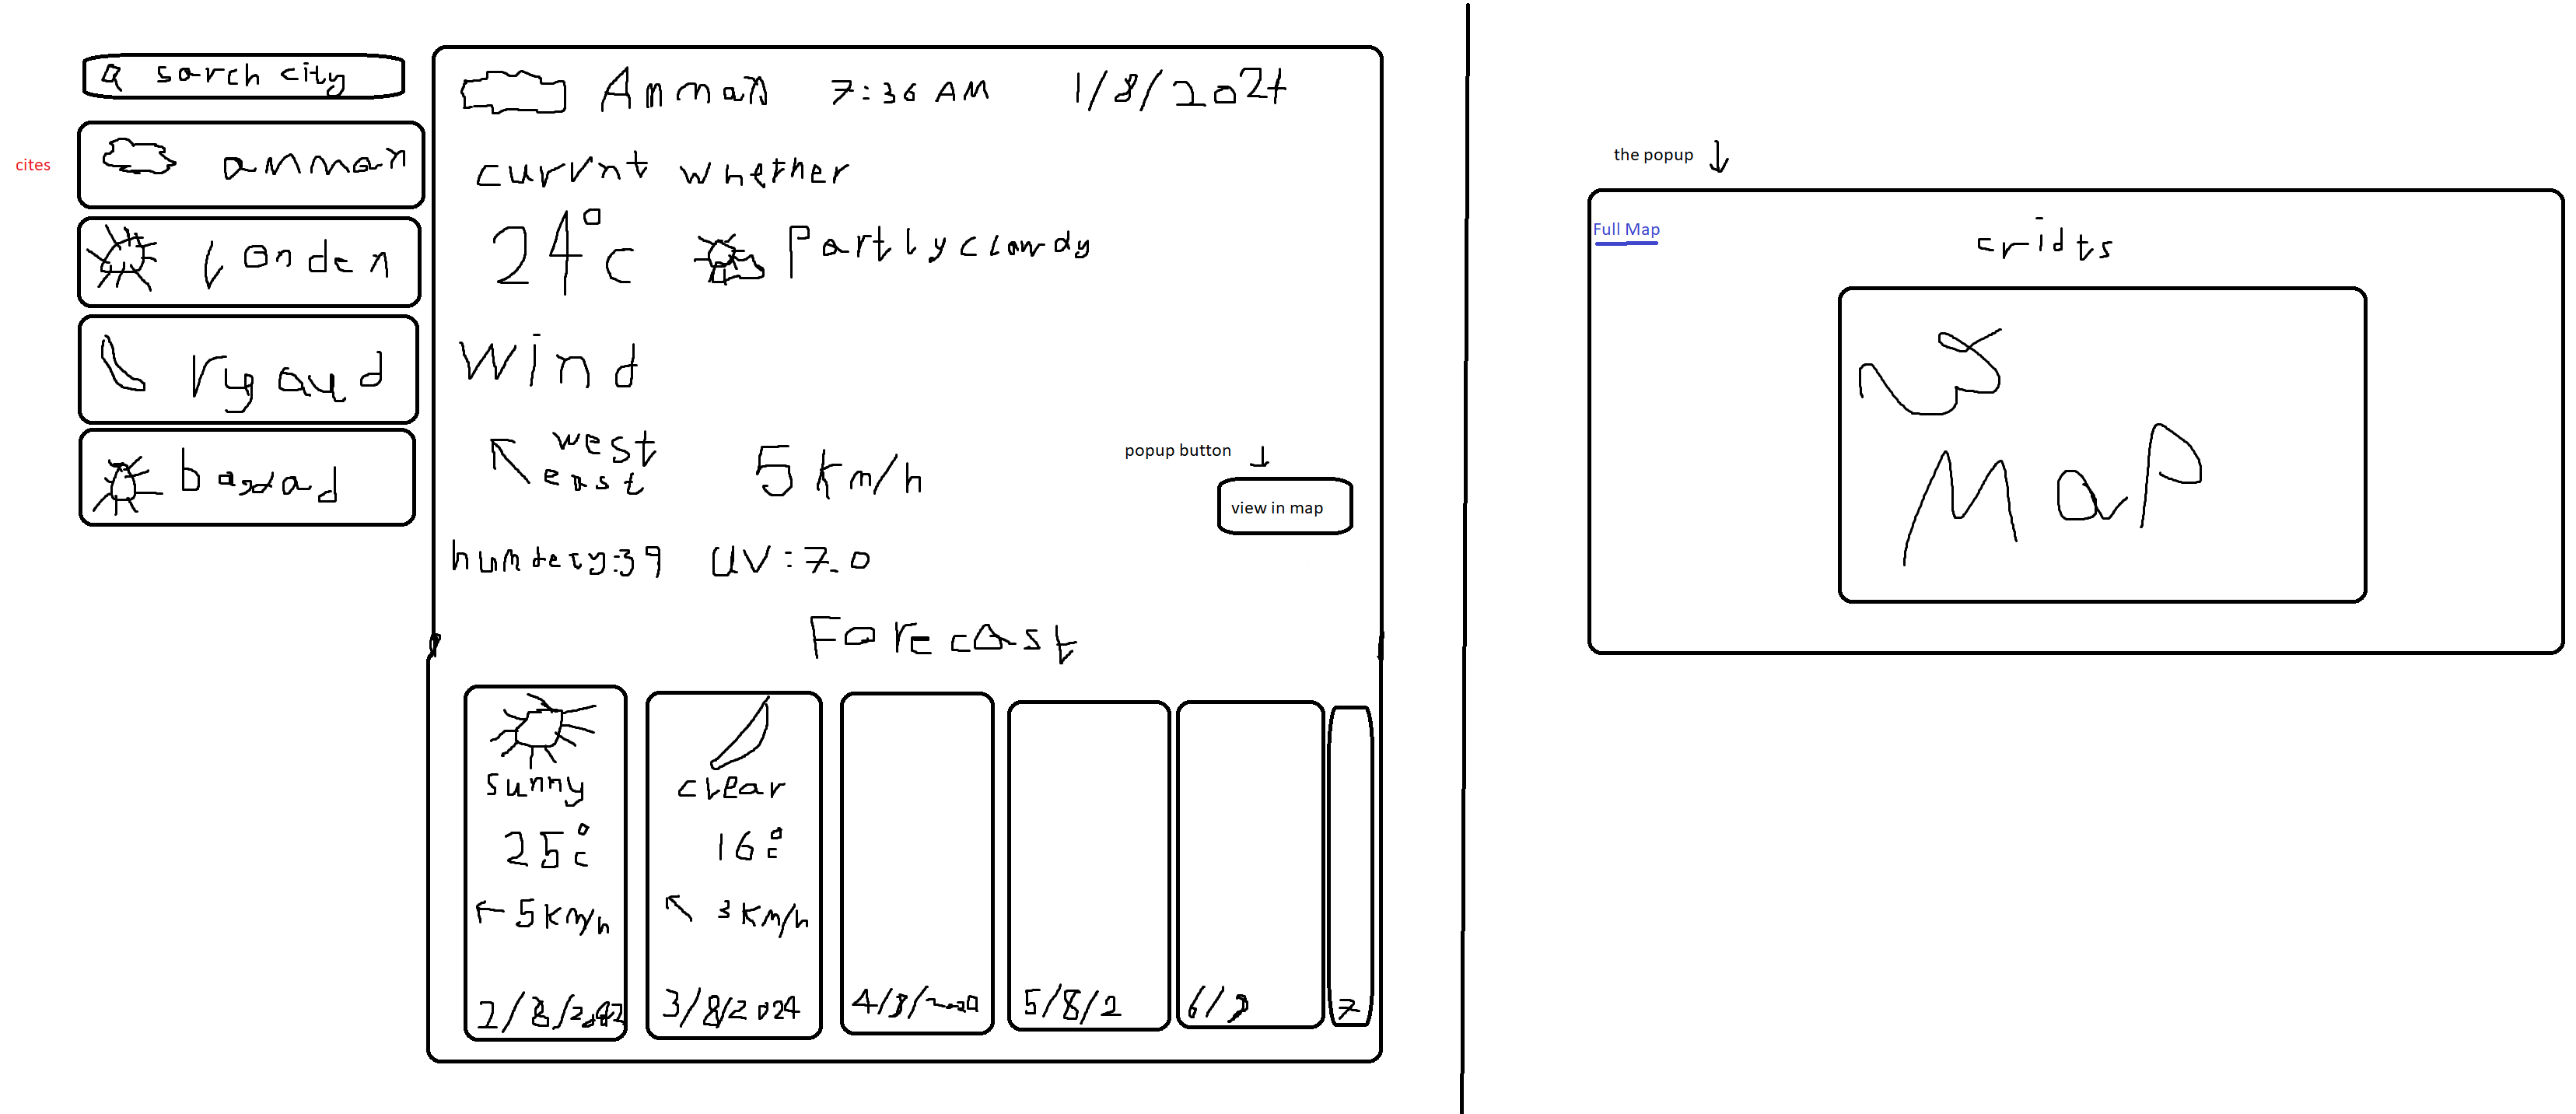 sarch city
cites
amman
london
rygaud
bagdad
Amman 7:36 AM 1/8/2024
currnt whether
24°c Partly clowdy
Wind
west
east
5 km/h
popup button
view in map
humdety:39 UV:7.0
Forecast
sunny
25°c
5 km/h
2/8/2042
clear
16°c
3 km/h
3/8/2024
4/8/2020
5/8/2
6/8
7
the popup
Full Map
cridts
MaP